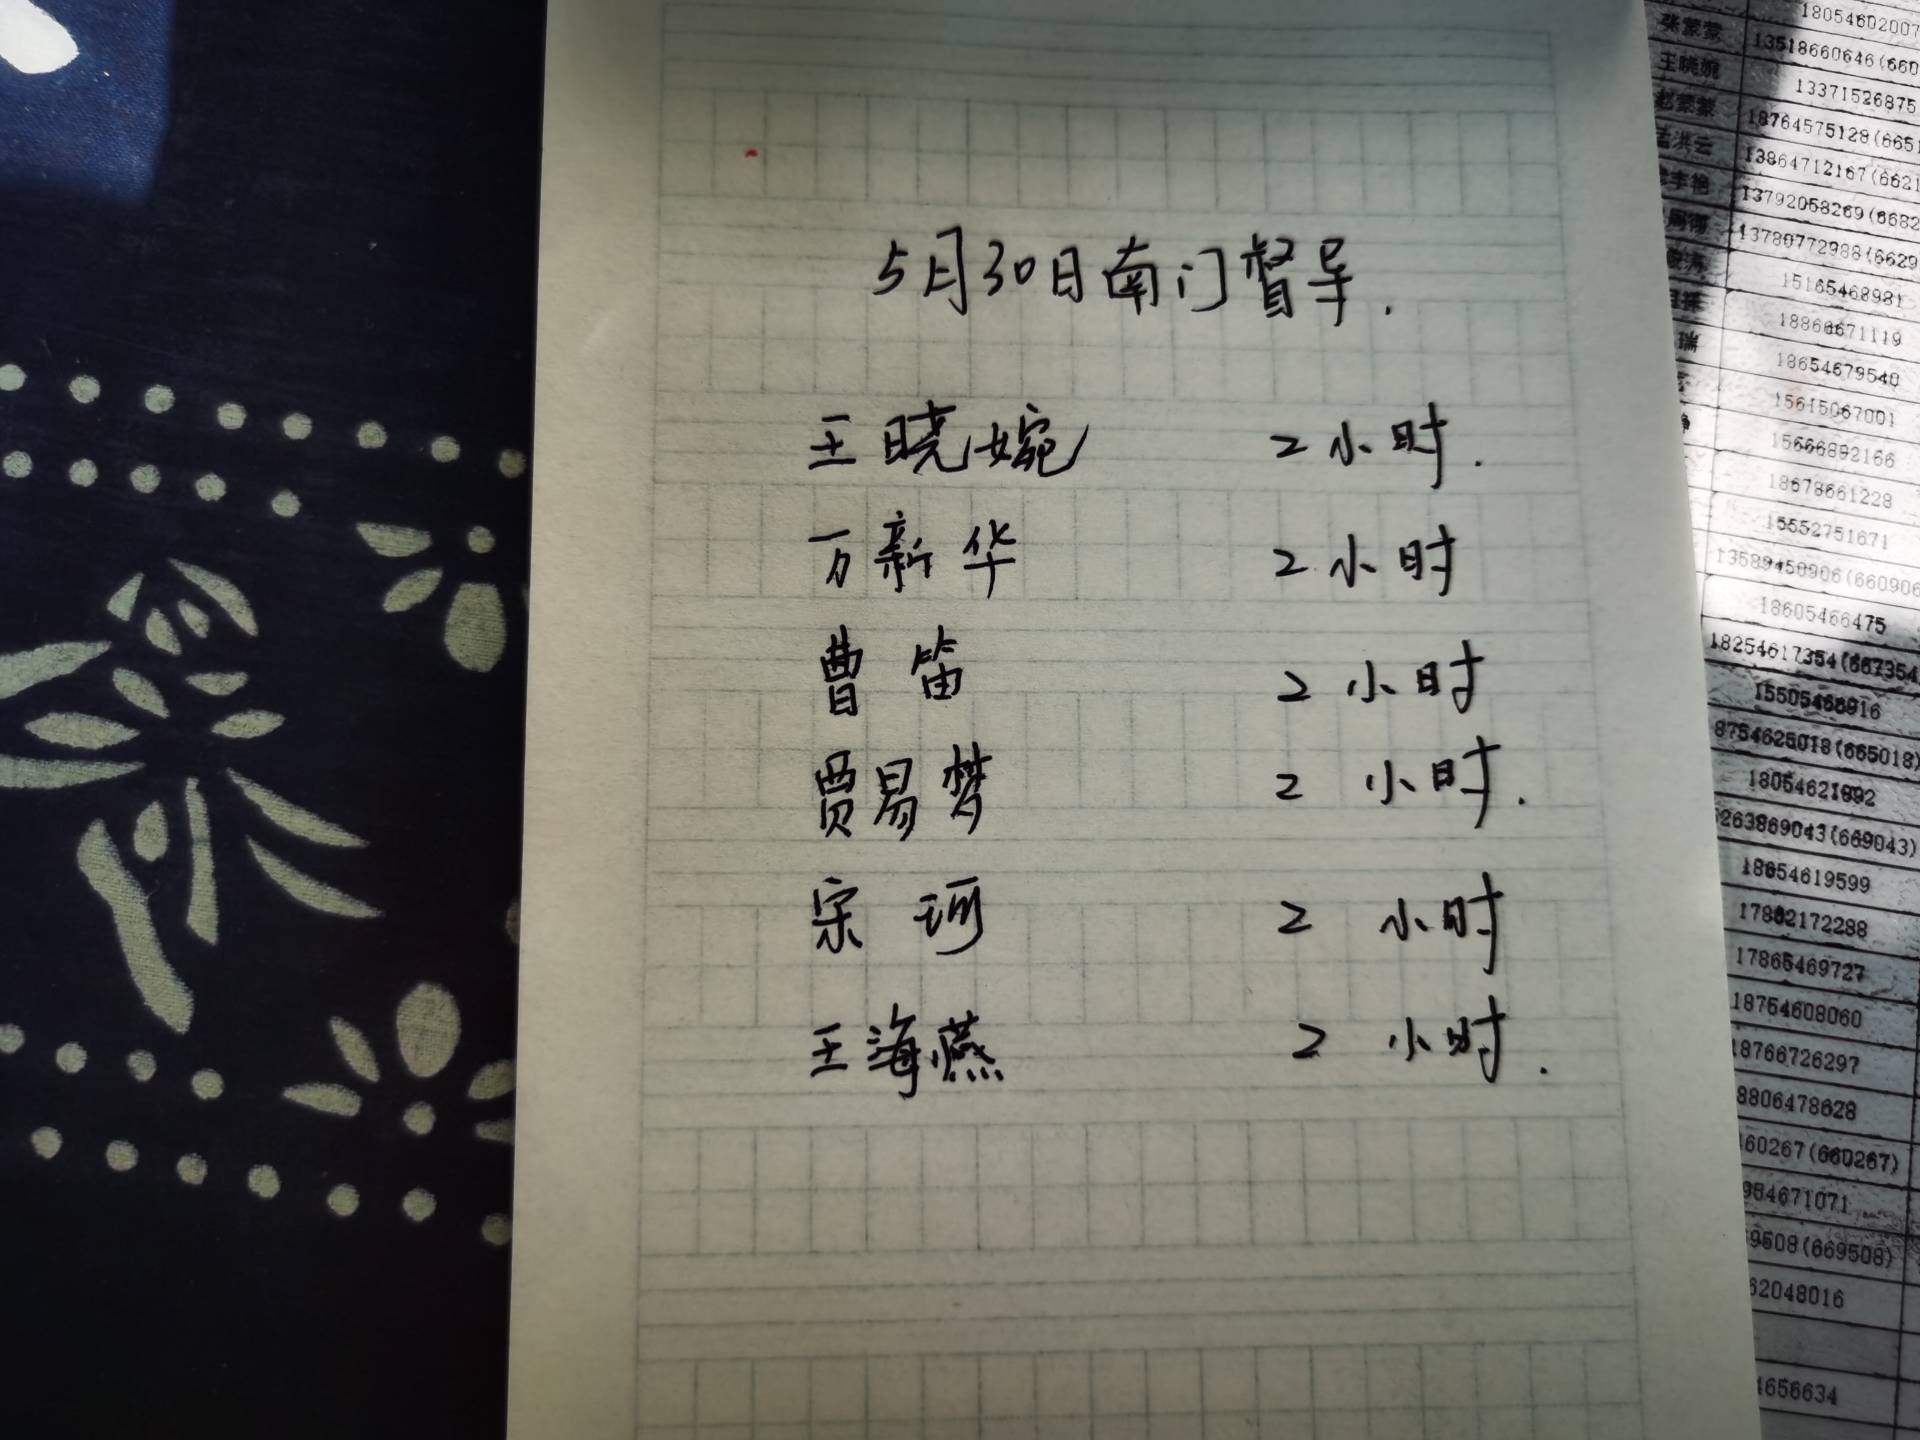 5月30日南门督导.
王晓婉 2小时.
万新华 2小时
曹笛 2小时
贾易梦 2小时.
宋珂 2小时
王海燕 2小时.
18054602007
张蒙蒙 13518660646(660
王晓婉 13371526875
赵蒙蒙 18764575128(6651
孟洪云 13864712167(6621
李艳 13792058269(6682
13780772988(6629
15165468981
18866671119
瑞 18654679540
15615067001
15666892166
18678661228
15552751671
13589450906(660906
18605466475
18254617354(667354
15505468916
8754625018(665018)
18054621992
263869043(669043)
18654619599
17862172288
17865469727
18754608060
18766726297
8806478628
60267(660267)
984671071
9508(669508)
62048016
1656634